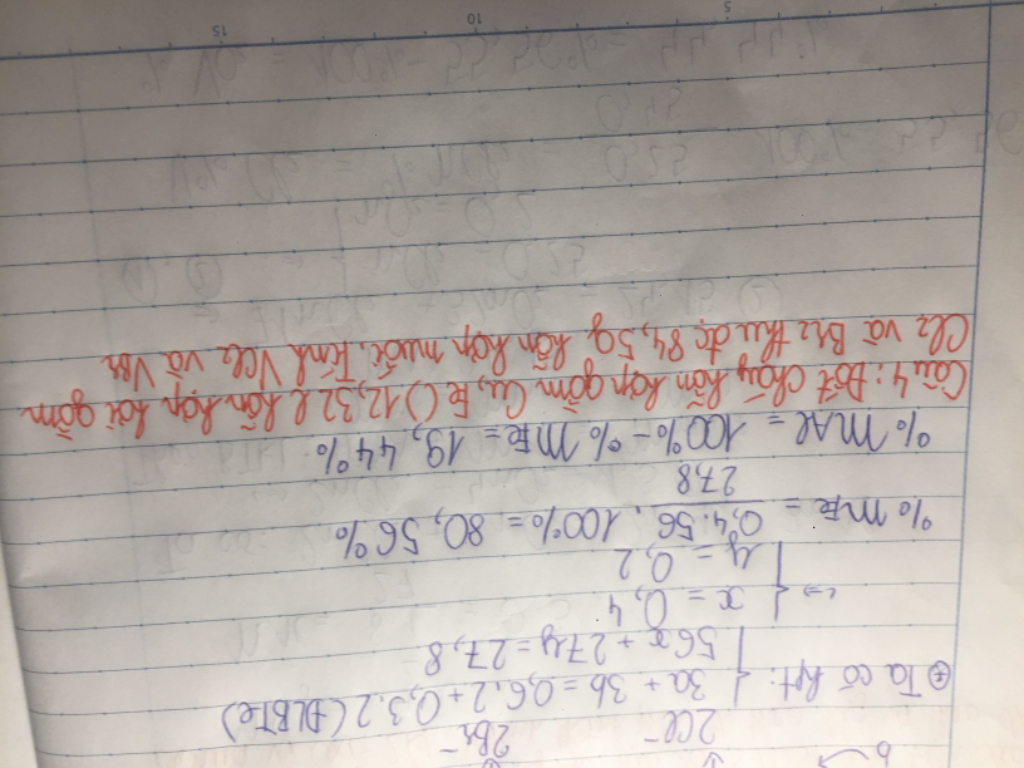 b
2Cl⁻ 2Br⁻
⊕ Ta có hpt: { 3a + 3b = 0,6.2 + 0,3.2 (ĐLBTe)
56x + 27y = 27,8
⇔ { x = 0,4
y = 0,2
% mFe = 0,4.56 / 27,8 . 100% = 80,56%
% mAl = 100% - % mFe = 19,44%
Câu 4: Đốt cháy hỗn hợp gồm Cu, Fe ( ) 12,32 l hỗn hợp hơi gồm
Cl₂ và Br₂ thu đc 84,5g hỗn hợp muối. Tính VCl₂ và VBr
5 10 15